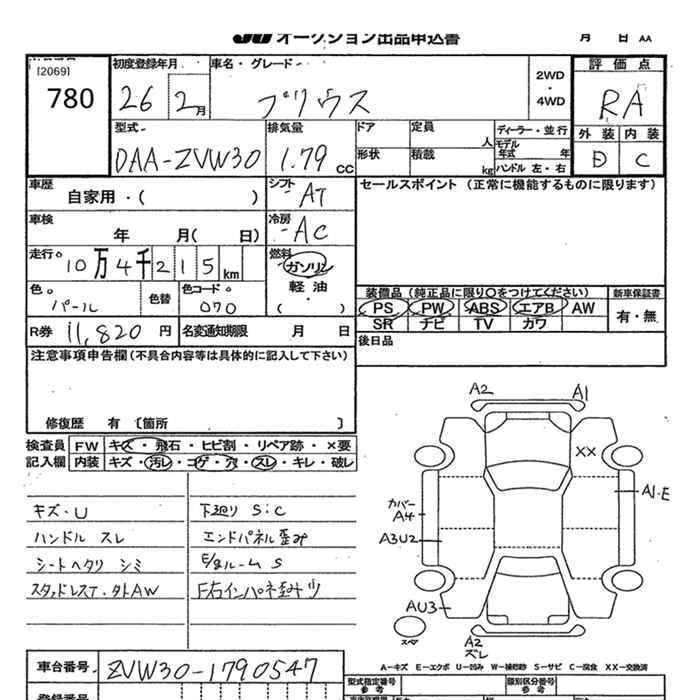 JU オークション出品申込書 月 日 AA
[2069]
780
初度登録年月 車名・グレード 2WD ・ 4WD 評価点
26 2月 プリウス RA
型式 排気量 ドア 定員 人 ディーラー・並行 外装 内装
DAA-ZVW30 1.79 CC 形状 積載 kg モデル年式 年 ハンドル 左・右 D C
車歴 自家用・( ) シフト AT セールスポイント (正常に機能するものに限ります)
車検 年 月( 日) 冷房 AC
走行 10万4千215km 燃料 ガソリン
軽油
( )
色 パール 色替 色コード 070
装備品 (純正品に限り○をつけてください) 新車保証書
PS PW ABS エアB AW 有・無
SR ナビ TV カワ
R券 11,820円 名変通知期限 月 日 後日品
注意事項申告欄(不具合内容等は具体的に記入して下さい)
修復歴 有 〔箇所 〕
検査員 FW キズ・飛石・ヒビ割・リペア跡・×要
記入欄 内装 キズ・汚レ・コゲ・穴・スレ・キレ・破レ
キズ・U 下廻り S:C
ハンドル スレ エンドパネル歪み
シートヘタリ シミ E/gルーム S
スタッドレスT.タトAW F右インパネ歪み小
A2 A1
XX
カバー
A4
A1.E
A3U2
AU3
スペア
A2
ズレ
A-キズ E-エクボ U-凹み W-補修跡 S-サビ C-腐食 XX-交換済
車台番号 ZVW30-1790547
型式指定番号 参考 類別区分番号 参考
登録番号